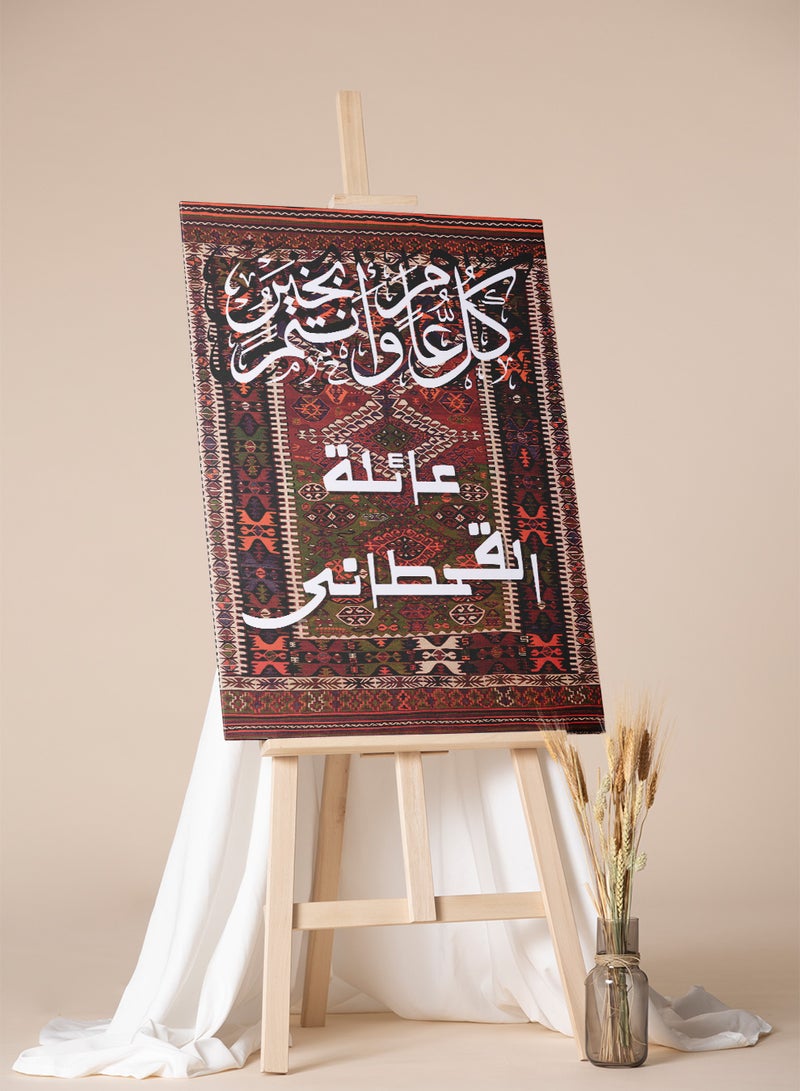 كُلُّ عَّامٍ وَأَنتُم بِخَيْرٍ
عائلة
القحطاني